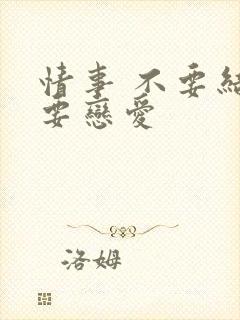 情事 不要結
要戀愛
洛姆